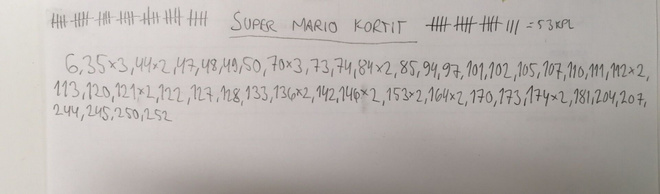 SUPER MARIO KORTIT = 53KPL
6, 35×3, 44×2, 47, 48, 49, 50, 70×3, 73, 74, 84×2, 85, 94, 97, 101, 102, 105, 107, 110, 111, 112×2,
113, 120, 121×2, 122, 127, 128, 133, 136×2, 142, 146×2, 153×2, 164×2, 170, 173, 174×2, 181, 204, 207,
244, 245, 250, 252